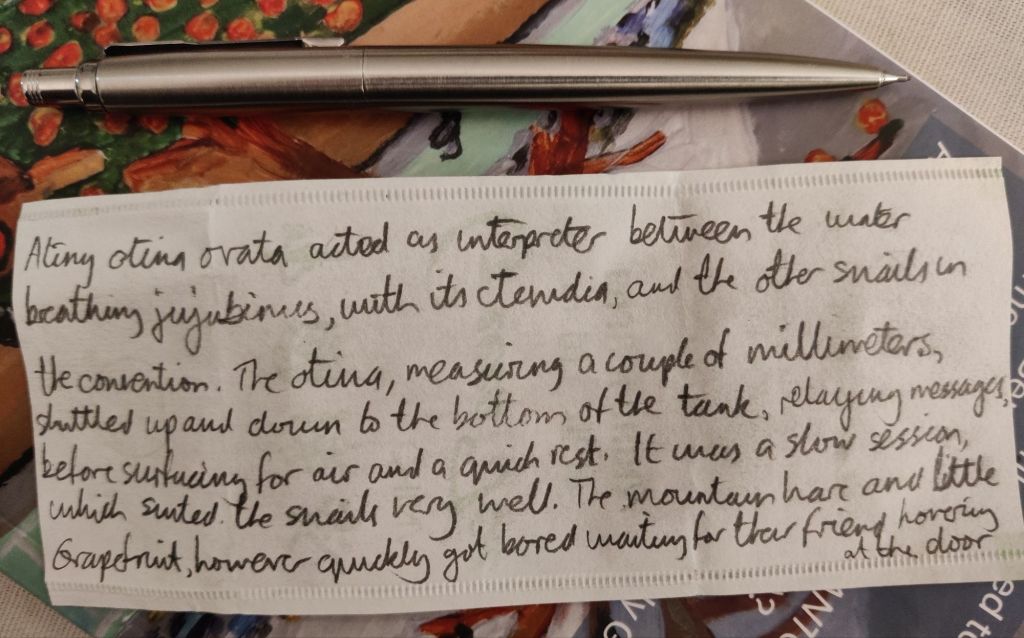 A tiny otina ovata acted as interpreter between the water
breathing jujubinus, with its ctenidia, and the other snails in
the convention. The otina, measuring a couple of millimeters,
shuttled up and down to the bottom of the tank, relaying messages,
before surfacing for air and a quick rest. It was a slow session,
which suited the snails very well. The mountain hare and little
Grapefruit, however quickly got bored waiting for their friend hovering
at the door